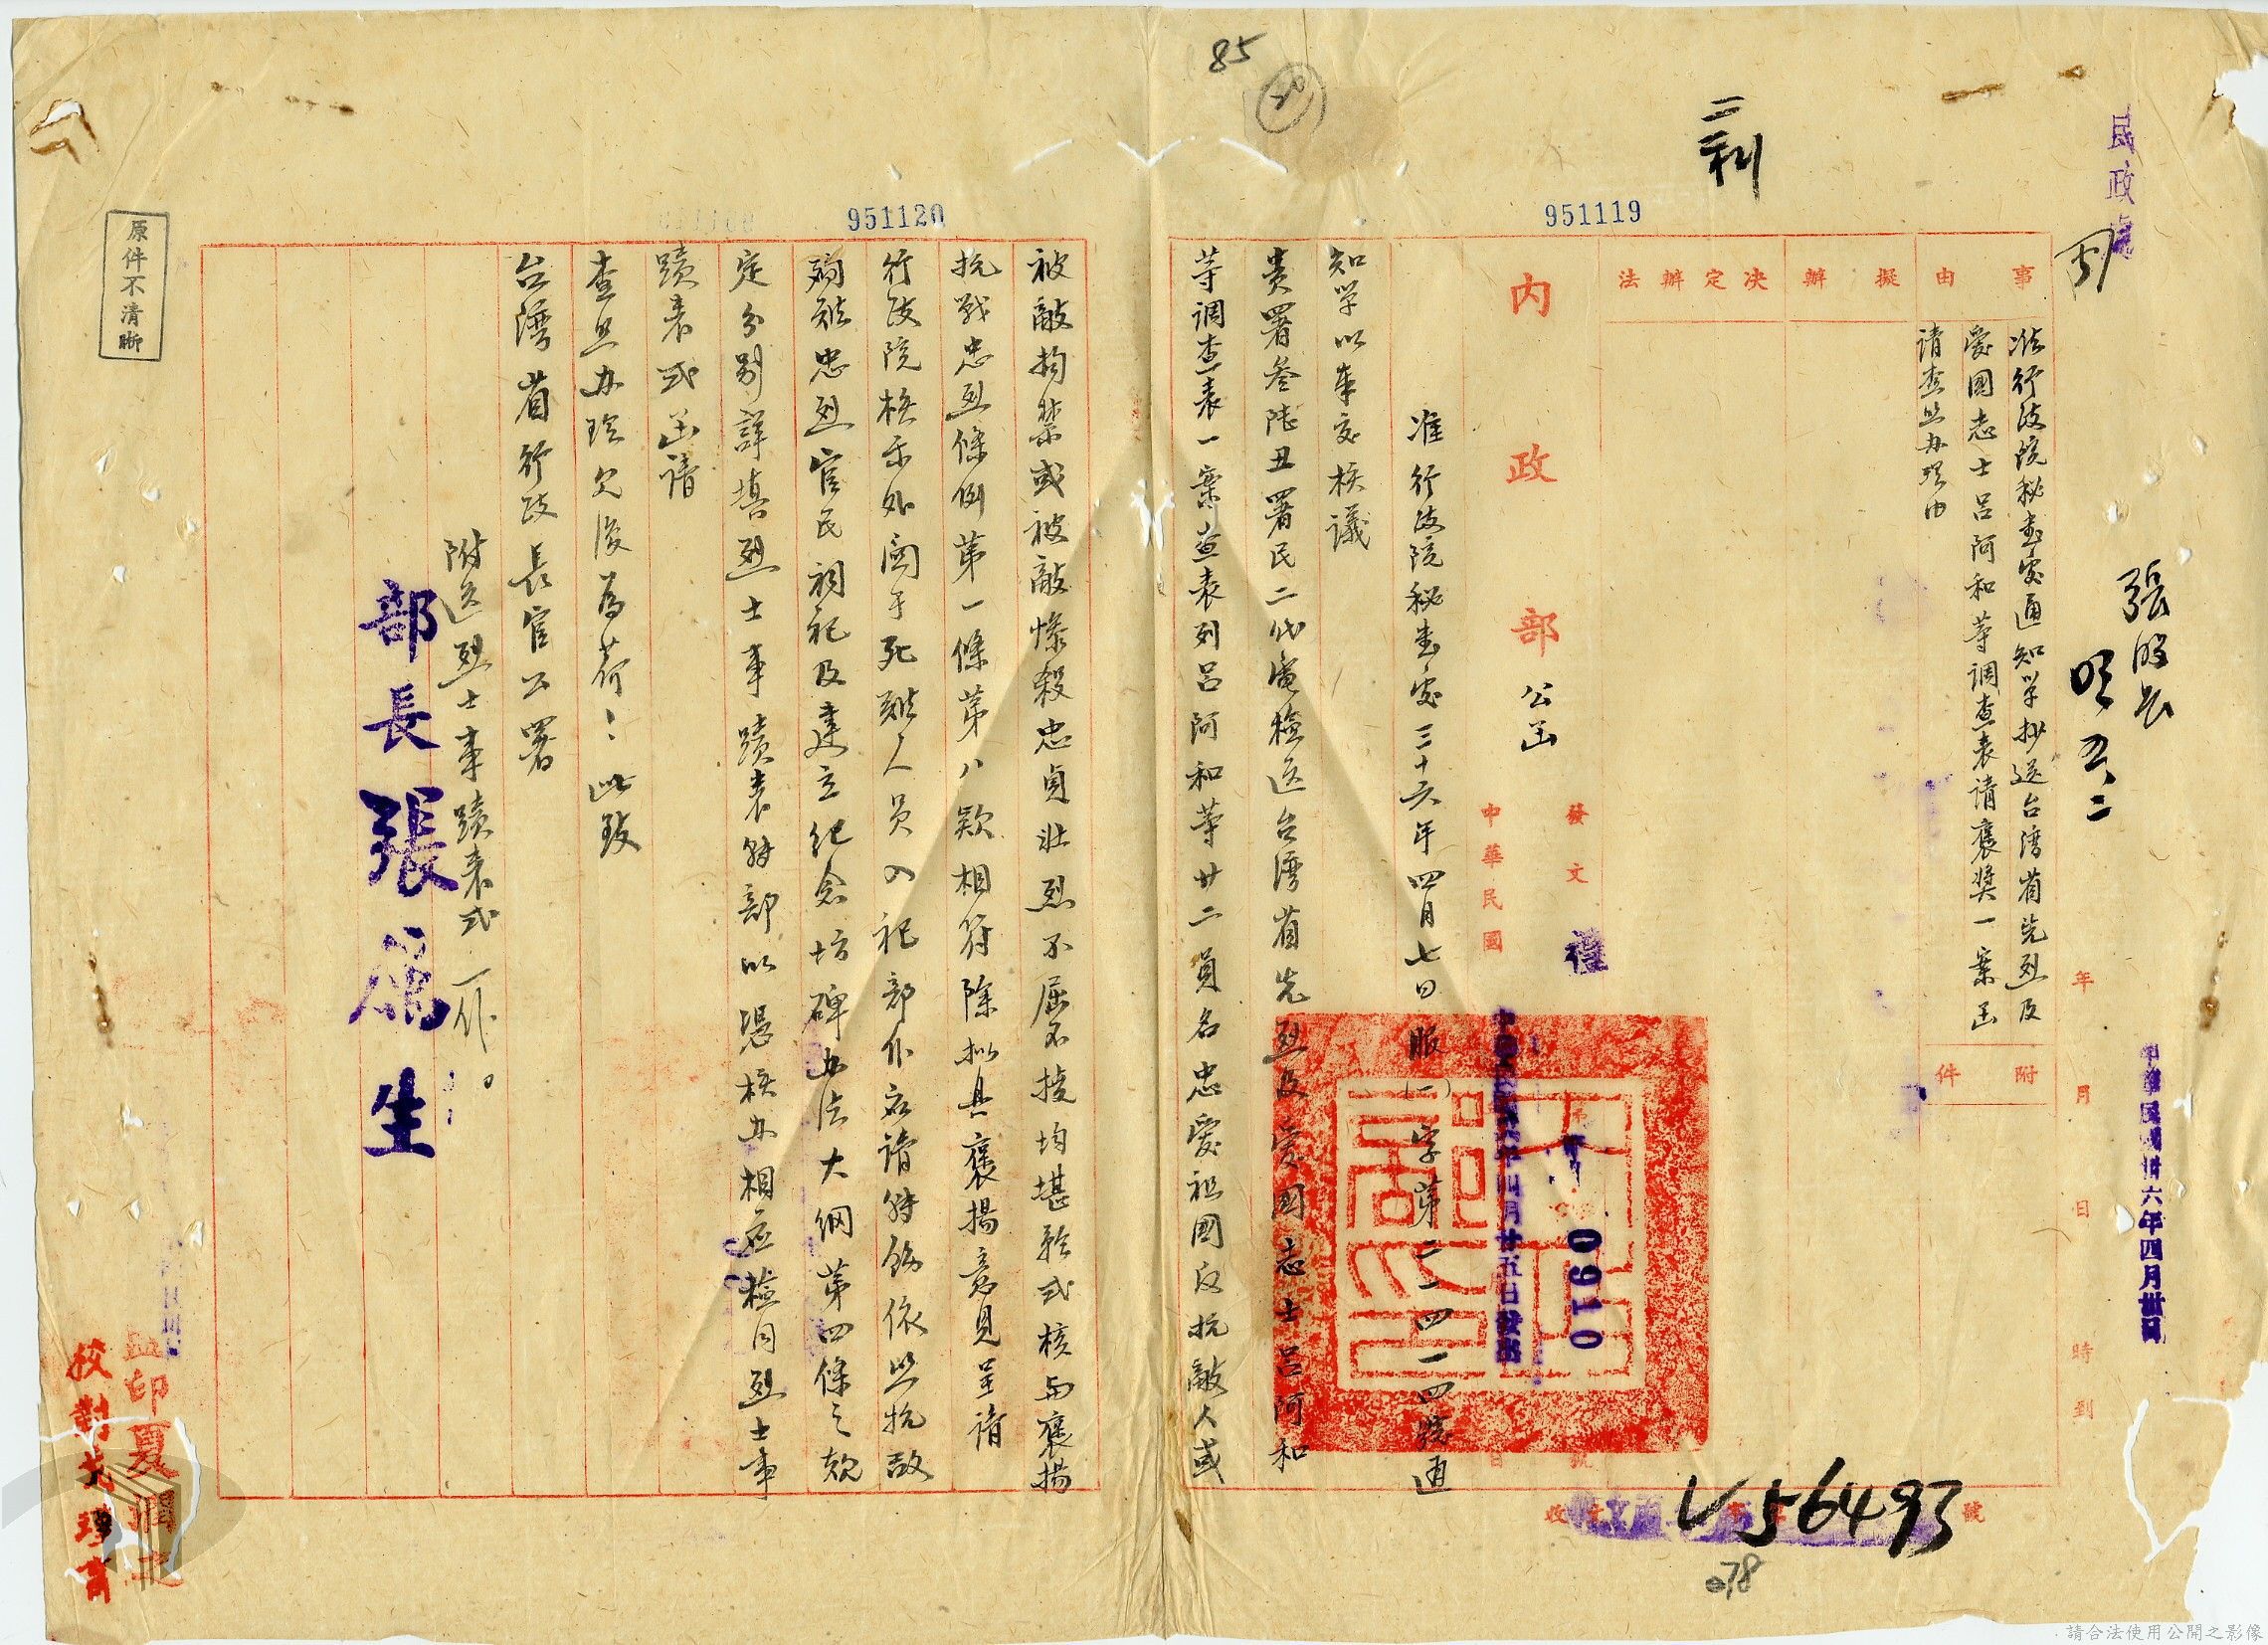 85
20
民政處
951119
951120
事由
擬辦
決定辦法
附件
准行政院秘書處通知單抄送台湾省先烈及
愛國志士呂阿和等調查表請褒獎一案函
請查照办理由
年月日時到
中華民國卅六年四月卅日
内政部公函
發文
禮
0910
中華民國
中華民國卅六年四月廿五日發出
准行政院秘書處三十六年四月七日服(一)字第二一四一四號通
知單以奉交核議
貴署叁陸丑署民二代電檢送台湾省先烈及愛國志士呂阿和
等調查表一案查表列呂阿和等廿二員名忠愛祖國反抗敵人或
被敵拘禁或被敵慘殺忠貞壯烈不屈不撓均堪矜式核与褒揚
抗戰忠烈條例第一條第八欵相符除拟具褒揚意見呈請
行政院核示外關于死难人員入祀部份应請轉飭依照抗敵
殉难忠烈官民祠祀及建立紀念坊碑办法大綱第四條之規
定分別詳填烈士事蹟表轉部以憑核办相应檢同烈士事
蹟表式函請
查照办理見復為荷此致
台湾省行政長官公署
附送烈士事蹟表式一份。
部長張厲生
原件不清晰
監印夏潤之
校對
收文字第號
56493
078
請合法使用公開之影像